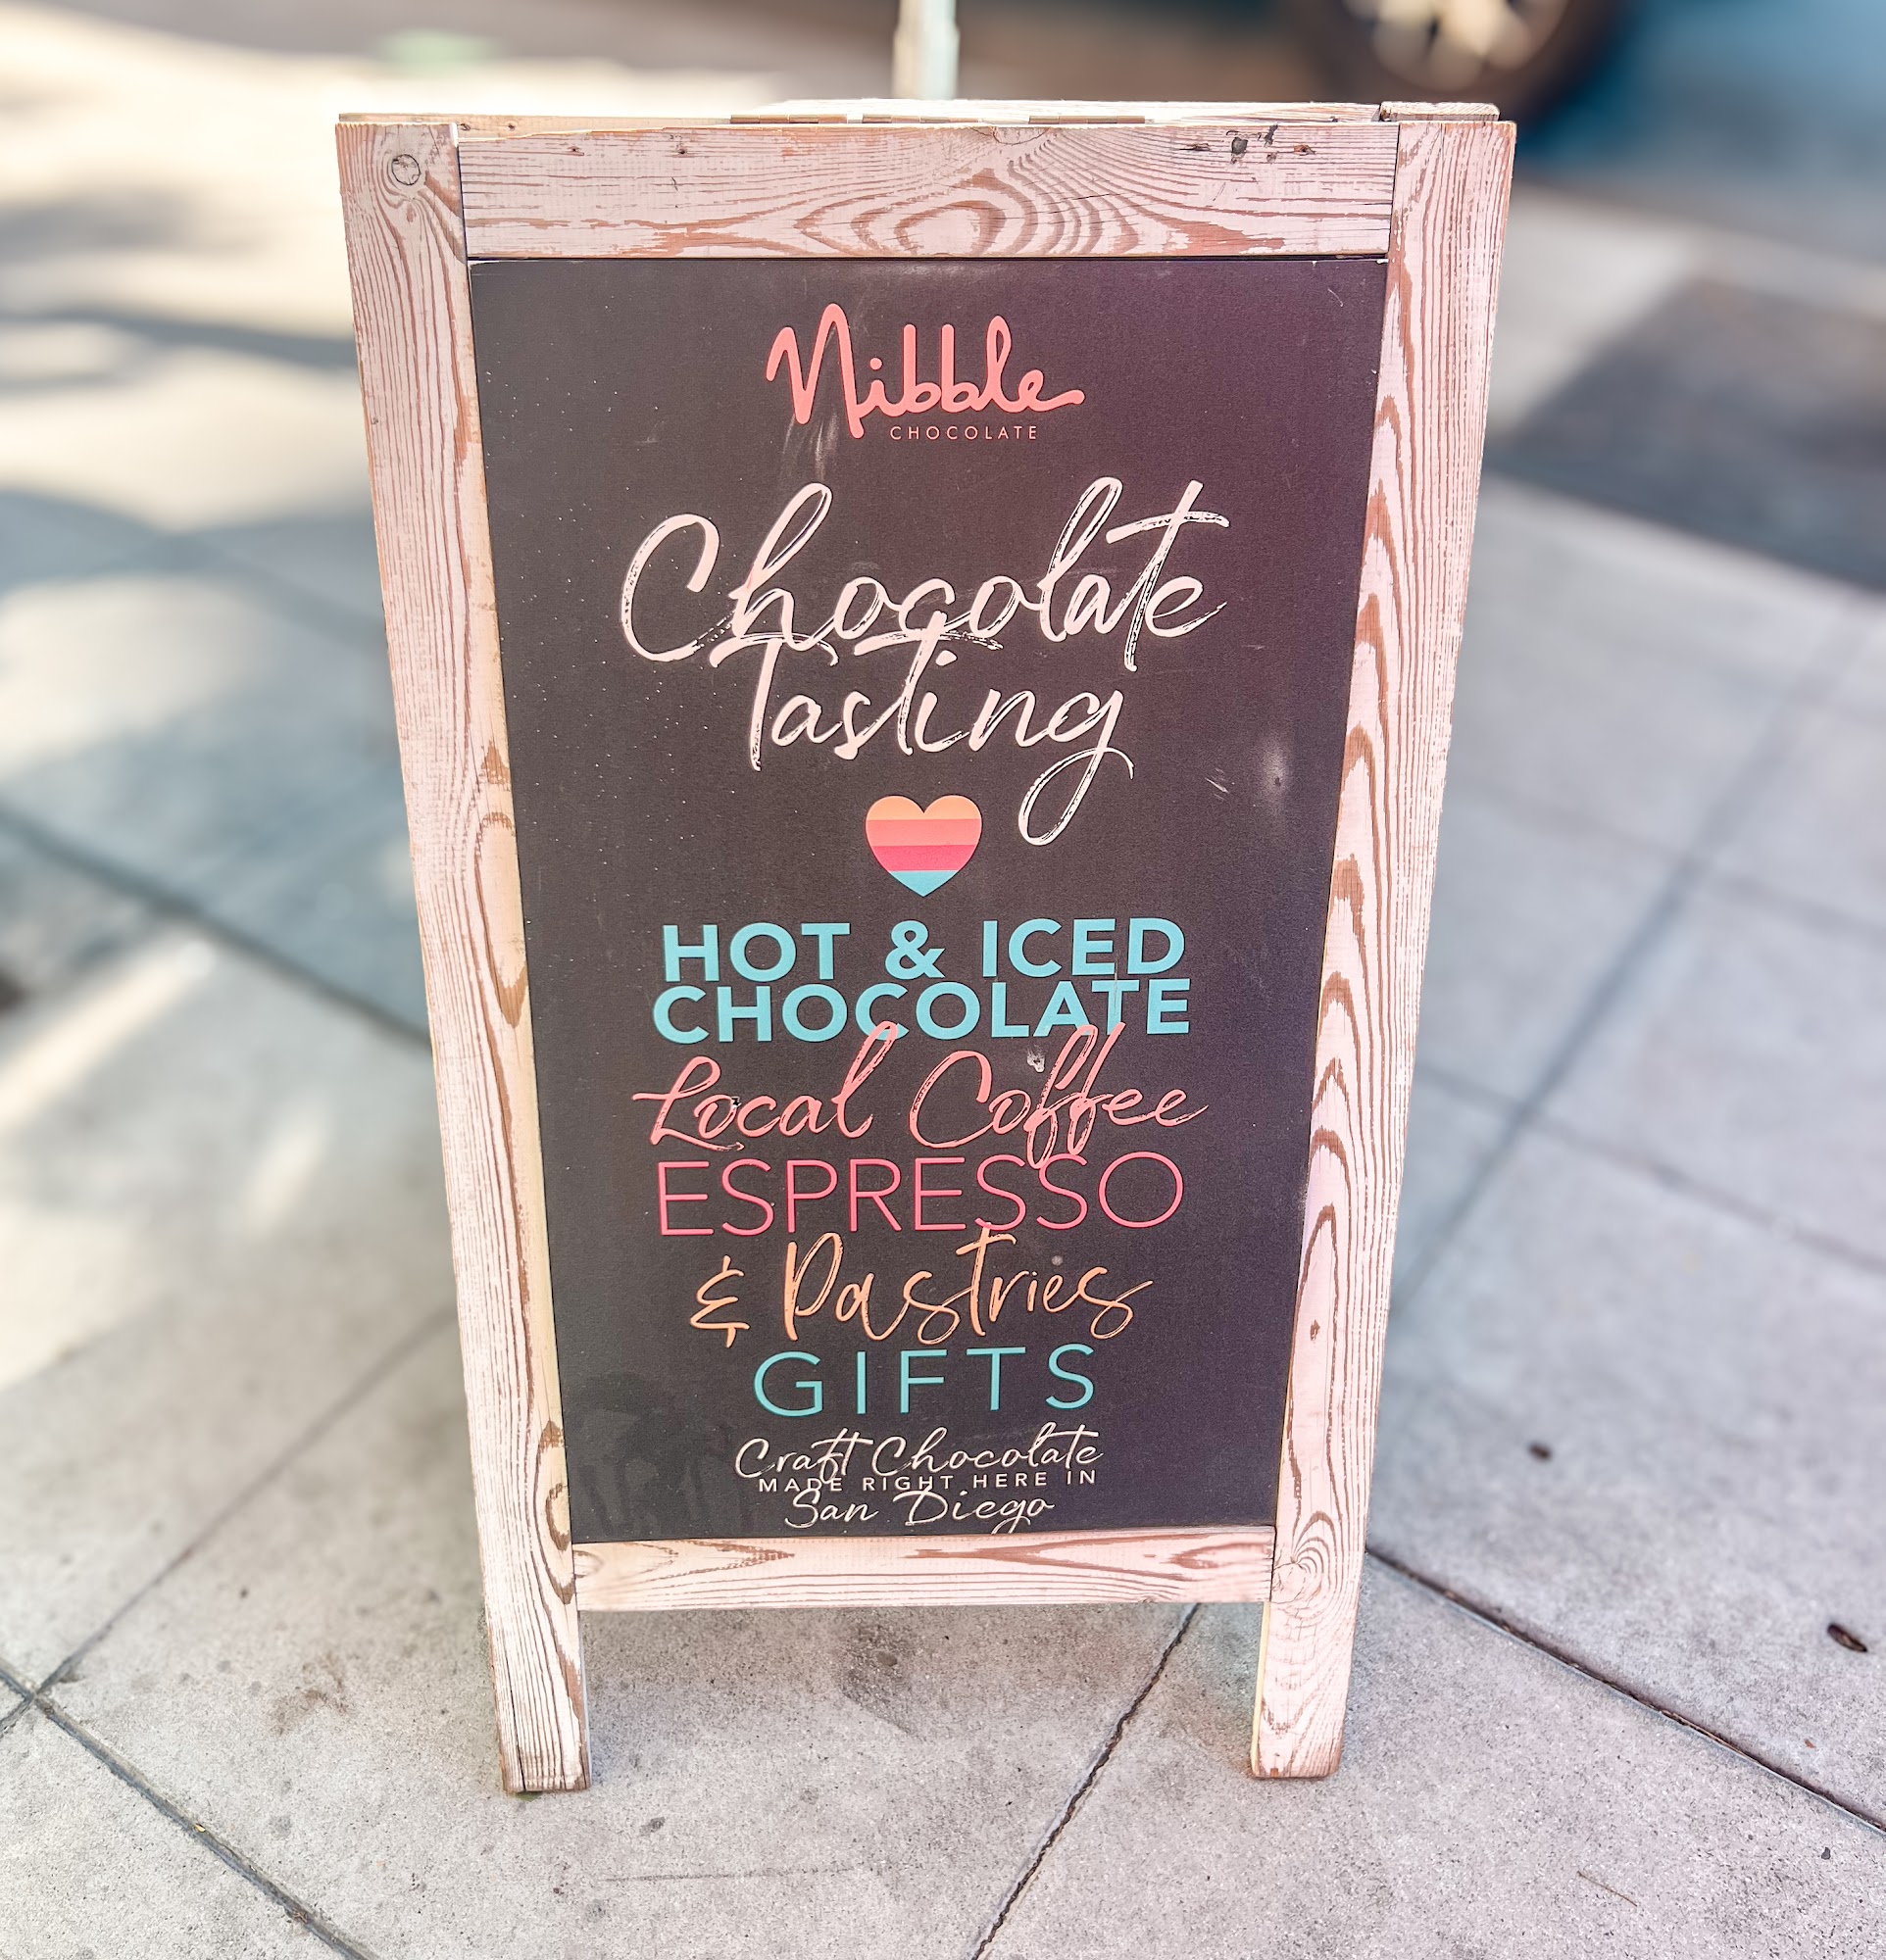 Nibble
CHOCOLATE
Chocolate
Tasting
HOT & ICED
CHOCOLATE
Local Coffee
ESPRESSO
& Pastries
GIFTS
Craft Chocolate
MADE RIGHT HERE IN
San Diego